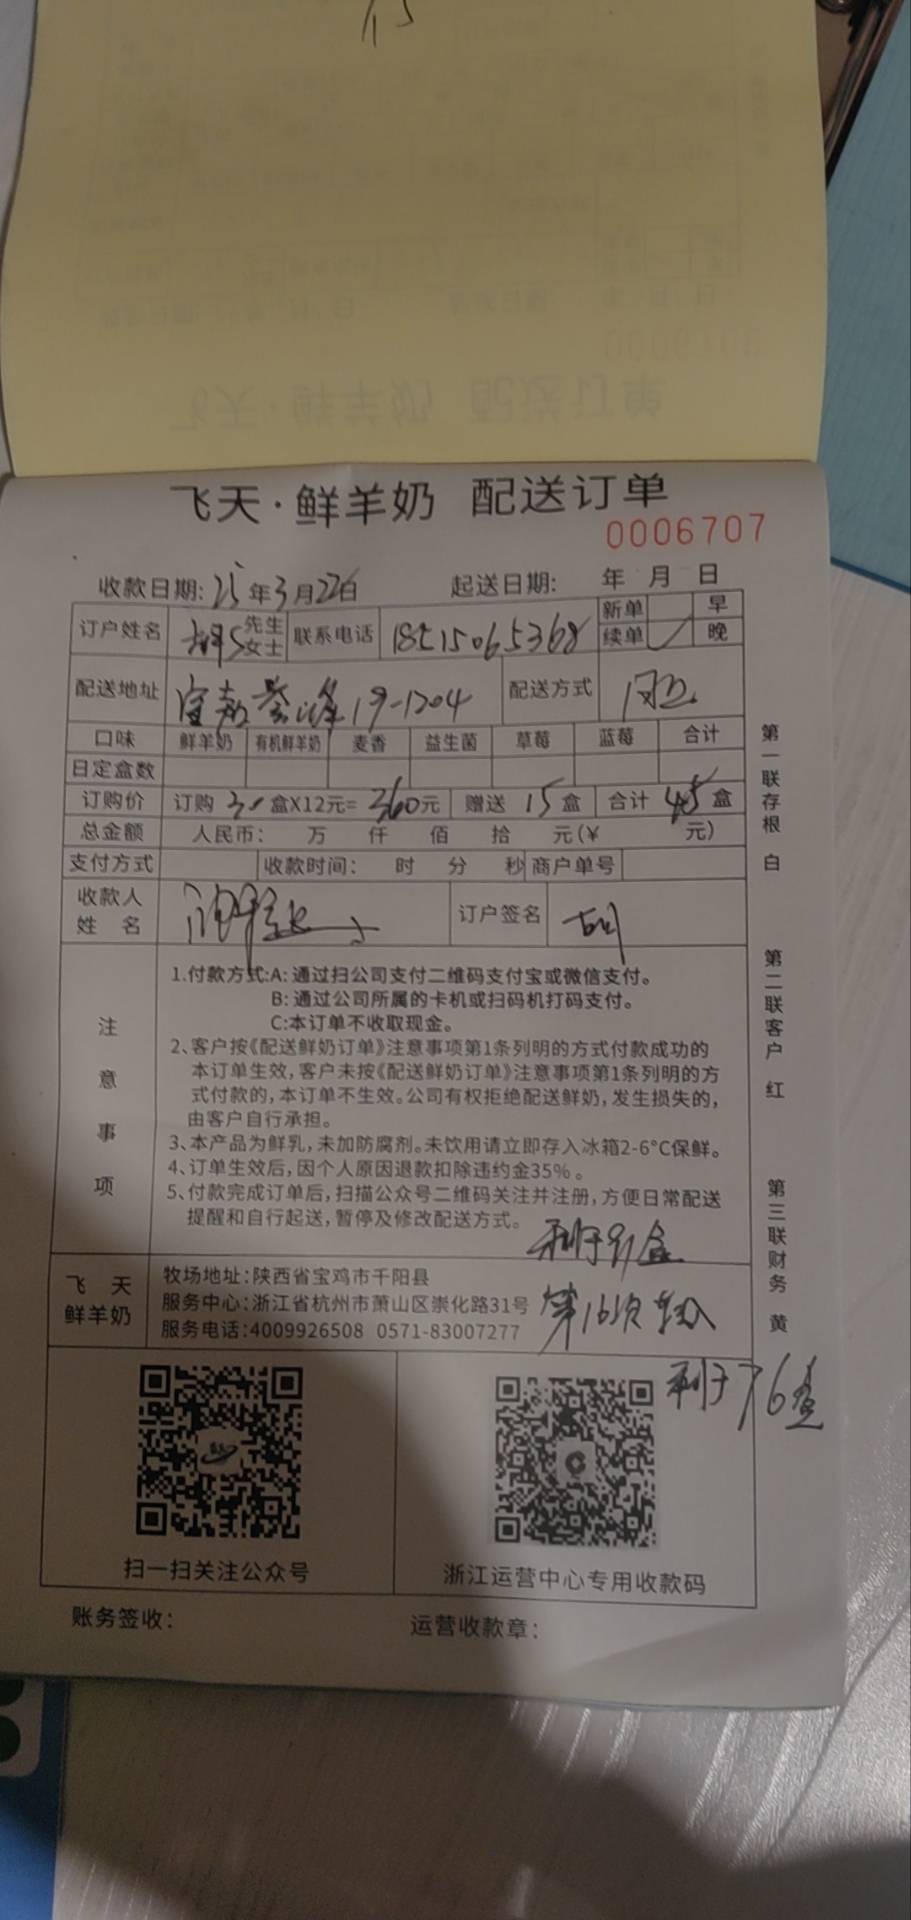 飞天·鲜羊奶 配送订单
0006707
收款日期:25年3月22日 起送日期: 年 月 日
订户姓名 胡S 先生 女士 联系电话 18515065368 新单 早
续单 ✓ 晚
配送地址 19-1204 配送方式
口味 鲜羊奶 有机鲜羊奶 麦香 益生菌 草莓 蓝莓 合计
日定盒数
订购价 订购 30 盒X12元= 360元 赠送 15 盒 合计 45 盒
总金额 人民币: 万 仟 佰 拾 元(¥ 元)
支付方式 收款时间: 时 分 秒 商户单号
收款人
姓 名 订户签名 胡
注意事项
1.付款方式:A: 通过扫公司支付二维码支付宝或微信支付。
B: 通过公司所属的卡机或扫码机打码支付。
C:本订单不收取现金。
2、客户按《配送鲜奶订单》注意事项第1条列明的方式付款成功的
本订单生效,客户未按《配送鲜奶订单》注意事项第1条列明的方
式付款的,本订单不生效。公司有权拒绝配送鲜奶,发生损失的,
由客户自行承担。
3、本产品为鲜乳,未加防腐剂。未饮用请立即存入冰箱2-6°C保鲜。
4、订单生效后,因个人原因退款扣除违约金35%。
5、付款完成订单后,扫描公众号二维码关注并注册,方便日常配送
提醒和自行起送,暂停及修改配送方式。
剩于91盒
飞 天
鲜羊奶
牧场地址:陕西省宝鸡市千阳县
服务中心:浙江省杭州市萧山区崇化路31号
服务电话:4009926508 0571-83007277
第16次
剩于76盒
扫一扫关注公众号
浙江运营中心专用收款码
账务签收: 运营收款章:
第一联存根 白
第二联客户 红
第三联财务 黄